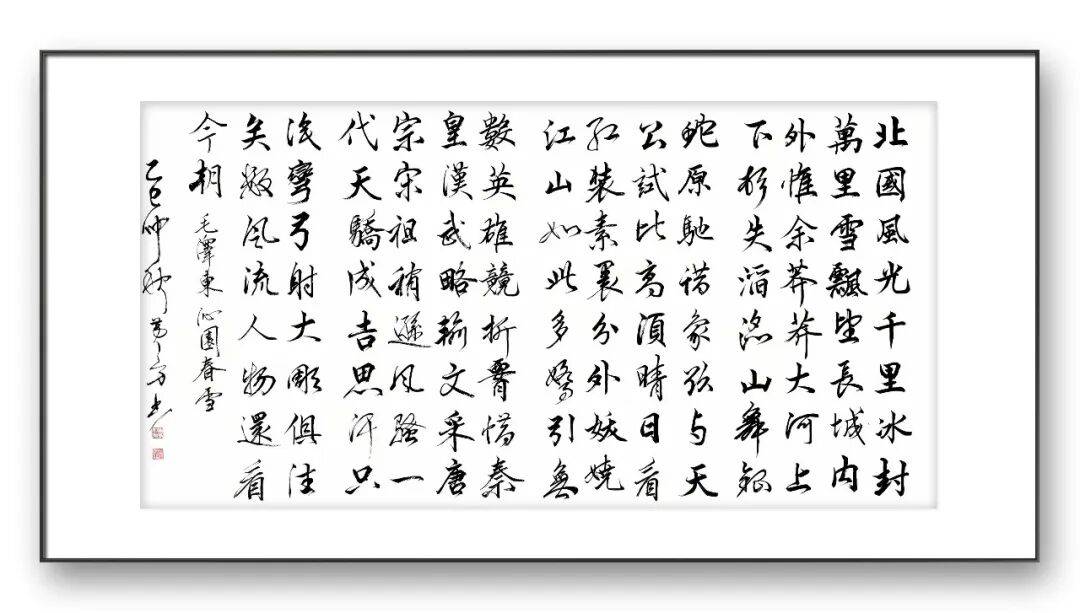 北國風光千里冰封
萬里雪飄望長城内
外惟余莽莽大河上
下顿失滔滔山舞银
蛇原馳蜡象欲与天
公試比高須晴日看
红装素裹分外妖娆
江山如此多嬌引無
數英雄競折腰惜秦
皇漢武略輸文采唐
宗宋祖稍遜风騷一
代天驕成吉思汗只
识彎弓射大雕俱往
矣数风流人物還看
今朝 毛澤東沁園春雪
乙巳仲秋